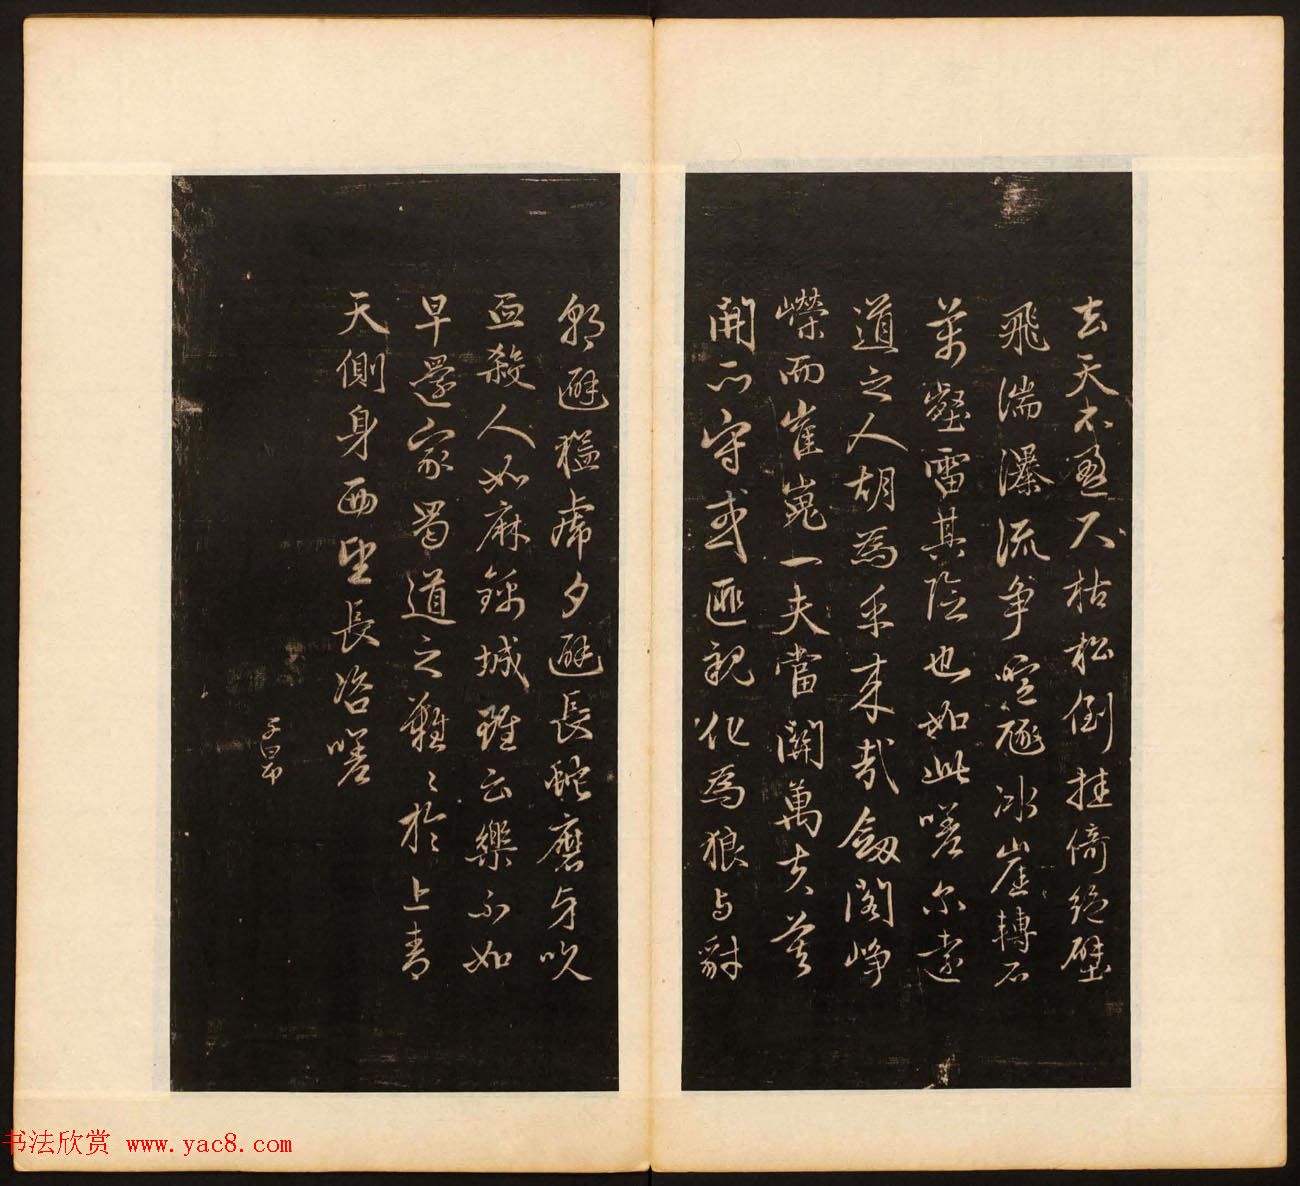 去天不盈尺枯松倒挂倚絶壁
飛湍瀑流争喧豗冰崖轉石
萬壑雷其險也如此嗟尔遠
道之人胡為乎来哉劔閣峥
嶸而崔嵬一夫當關萬夫莫
開所守或匪親化為狼与豺
朝避猛虎夕避長蛇磨牙吮
血殺人如麻錦城雖云樂不如
早還家蜀道之難〻於上青
天側身西望長咨嗟
子昂
书法欣赏 www.yac8.com